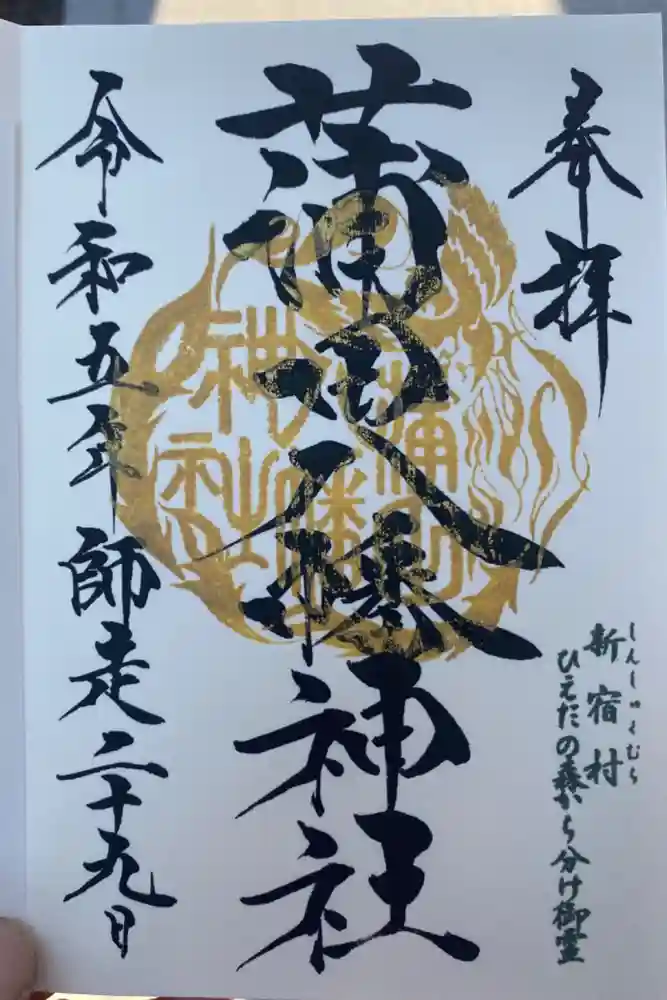 奉拝
しんしゅくむら
新宿村
ひえだの森から分け御霊
蒲田八幡神社
令和五年師走二十九日